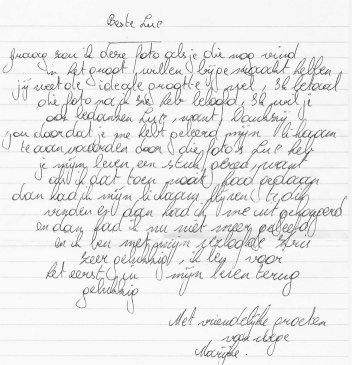 Beste Luc
graag zou ik deze foto als je die nog vind
in het groot willen bijge maakt hebben
jij weet de ideale grootte wel, Ik betaal
die foto na ik ze heb betaald, Ik wil je
ook bedanken Luc, want Dankzij
jou doordat je me hebt geleerd mijn lichaam
te aanvaarden door die foto's Luc heb
je mijn leven een stuk gered, want
als ik dat toen nooit had gedaan
dan had ik mijn lichaam blijven
vinden en dan had ik me uit gehongerd
en dan had ik nu niet meer geleefd
en ik ben met mijn verloofde
zeer gelukkig, ik ben voor
het eerst in mijn leven terug
gelukkig
Met vriendelijke groeten
van wege
Marijke.